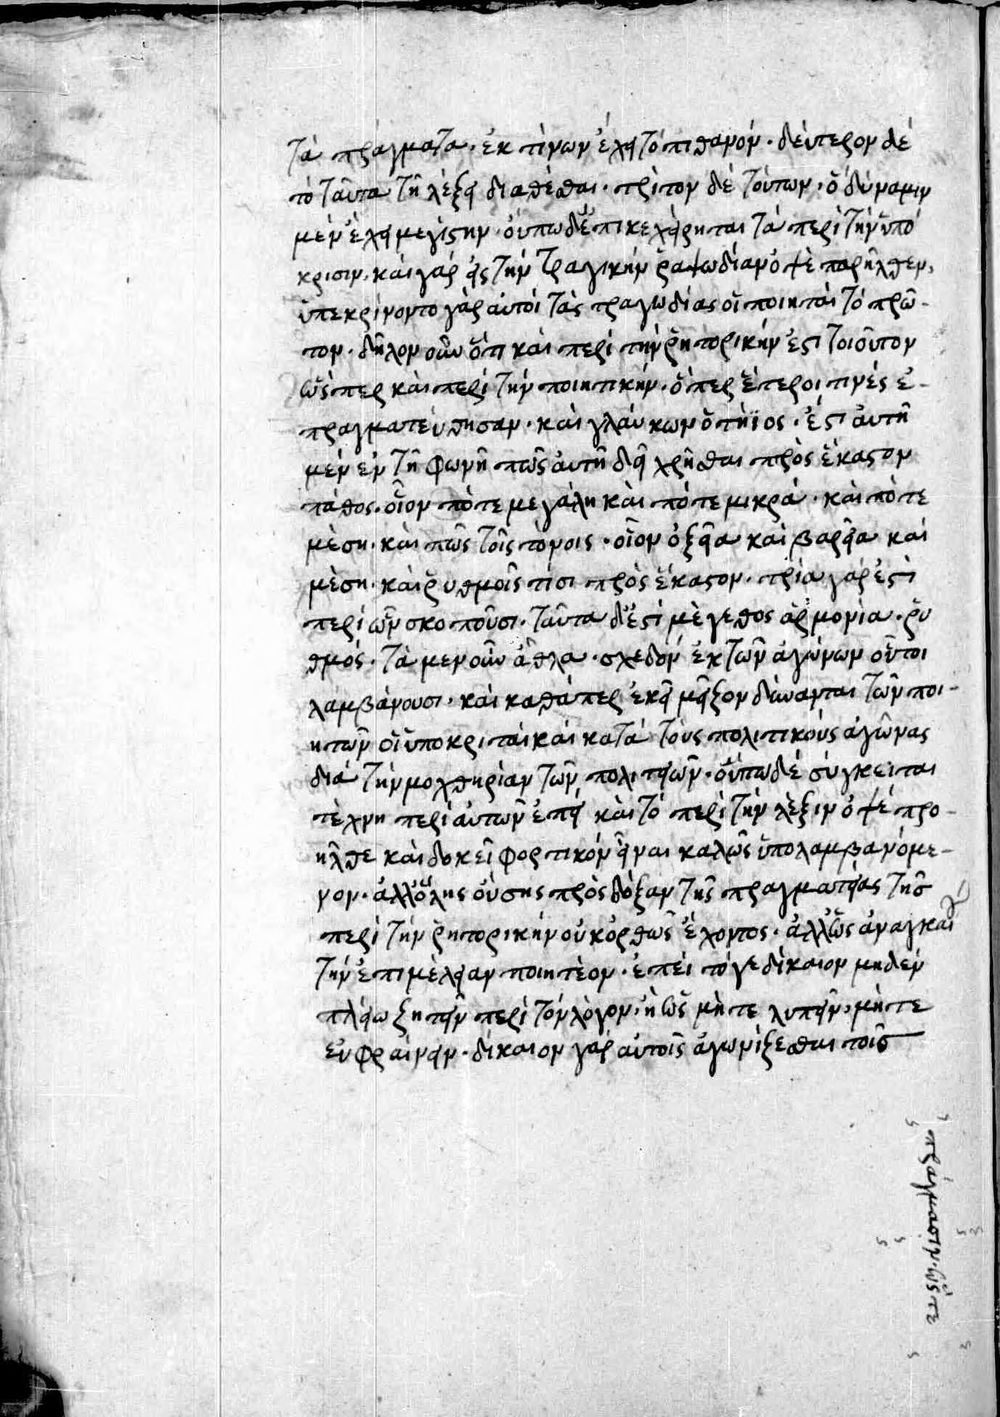 τὰ πράγματα· ἐκ τίνων ἔχει τὸ πιθανόν· δεύτερον δὲ
τὸ ταῦτα τῇ λέξει διαθέσθαι· τρίτον δὲ τούτων· ὃ δύναμιν
μὲν ἔχει μεγίστην· οὔπω δ' ἐπικεχείρηται τὰ περὶ τὴν ὑπό
κρισιν· καὶ γὰρ εἰς τὴν τραγικὴν ῥαψωδίαν ὀψὲ παρῆλθεν·
ὑπεκρίνοντο γὰρ αὐτοὶ τὰς τραγωδίας οἱ ποιηταὶ τὸ πρῶ-
τον· δῆλον οὖν ὅτι καὶ περὶ τὴν ῥητορικήν ἐστι τοιοῦτον
ὥσπερ καὶ περὶ τὴν ποιητικήν· ὅπερ ἕτεροι τινὲς ἐ-
πραγματεύθησαν· καὶ γλαύκων ὁ τήϊος· ἔστι αὐτὴ
μὲν ἐν τῇ φωνῇ πῶς αὐτῇ δεῖ χρῆσθαι πρὸς ἕκαστον
πάθος· οἷον πότε μεγάλη καὶ πότε μικρά· καὶ πότε
μέση· καὶ πῶς τοῖς τόνοις· οἷον ὀξεῖα καὶ βαρεῖα καὶ
μέση· καὶ ῥυθμοῖς τίσι πρὸς ἕκαστον· τρία γάρ ἐστὶ
περὶ ὧν σκοποῦσι· ταῦτα δ' ἐστὶ μέγεθος ἁρμονία· ῥυ
θμός· τὰ μὲν οὖν ἆθλα· σχεδὸν ἐκ τῶν ἀγώνων οὗτοι
λαμβάνουσι· καὶ καθάπερ ἐκεῖ μεῖζον δύνανται τῶν ποι-
ητῶν οἱ ὑποκριταὶ καὶ κατὰ τοὺς πολιτικοὺς ἀγῶνας
διὰ τὴν μοχθηρίαν τῶν πολιτειῶν· οὔπω δὲ σύγκειται
τέχνη περὶ αὐτῶν ἐπεὶ καὶ τὸ περὶ τὴν λέξιν ὀψὲ προ-
ῆλθε καὶ δοκεῖ φορτικὸν εἶναι καλῶς ὑπολαμβανόμε-
νον· ἀλλ' ὅλης οὔσης πρὸς δόξαν τῆς πραγματείας τῆς
περὶ τὴν ῥητορικὴν οὐκ ὀρθῶς ἔχοντος· ἀλλ' ὡς ἀναγκαί
τὴν ἐπιμέλειαν ποιητέον· ἐπεὶ τό γε δίκαιον μηδὲν
πλείω ζητεῖν περὶ τὸν λόγον· ἢ ὡς μήτε λυπεῖν· μήτε
εὐφραίνειν· δίκαιον γὰρ αὐτοῖς ἀγωνίζεσθαι τοῖς
πράγμασιν· ὥστε